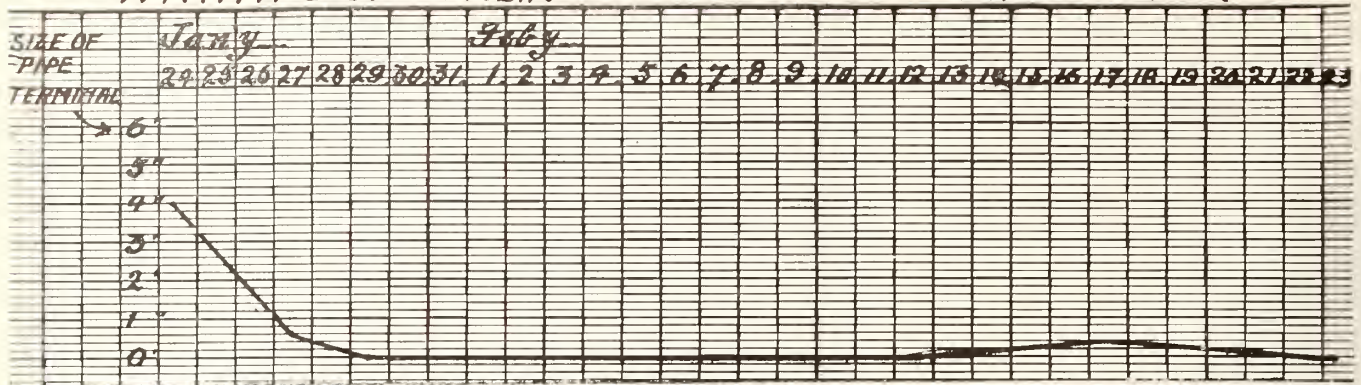 SIZE OF
PIPE
TERMINAL
Jan'y
Feb'y
24 25 26 27 28 29 30 31 1 2 3 4 5 6 7 8 9 10 11 12 13 14 15 16 17 18 19 20 21 22 23
6"
5"
4"
3"
2"
1"
0"